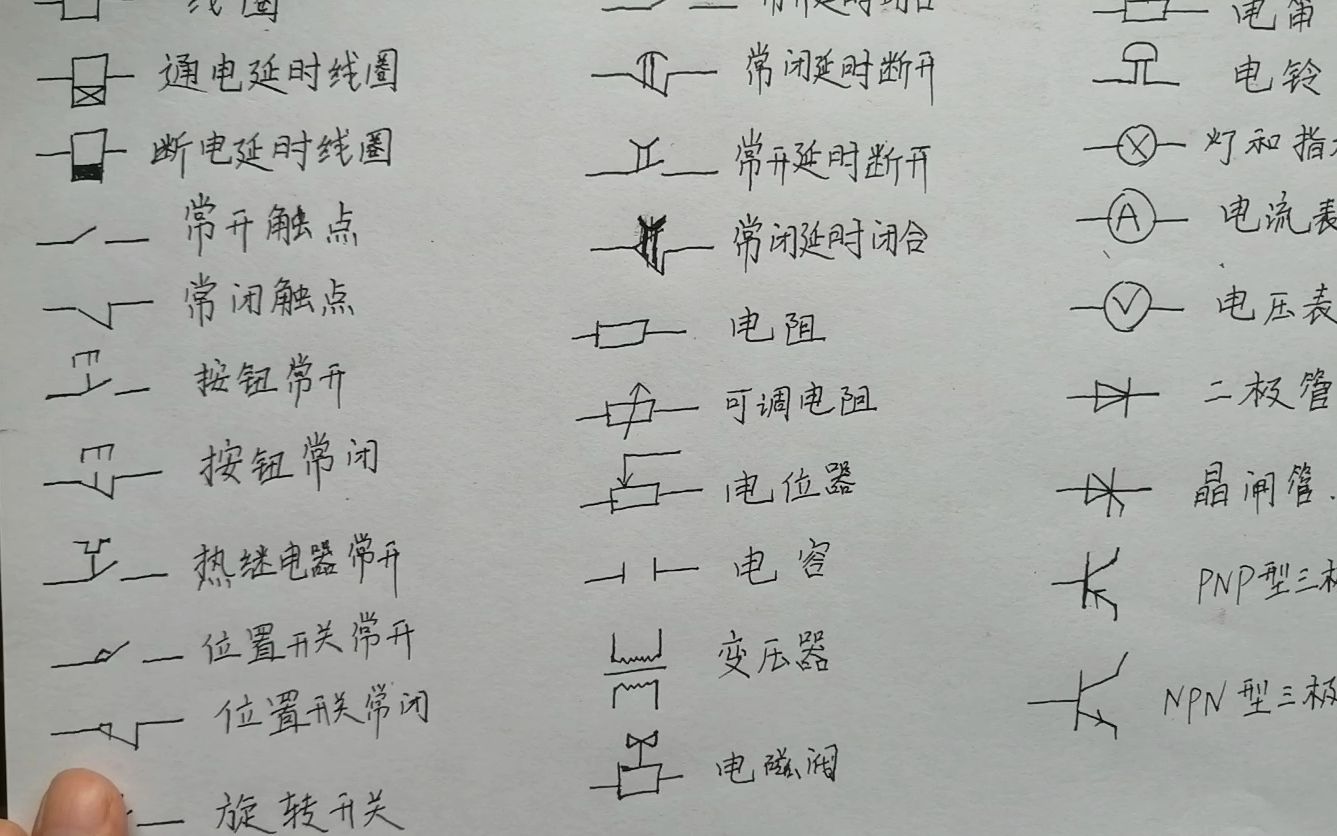 线圈
通电延时线圈
断电延时线圈
常开触点
常闭触点
按钮常开
按钮常闭
热继电器常开
位置开关常开
位置开关常闭
旋转开关
常开延时闭合
常闭延时断开
常开延时断开
常闭延时闭合
电阻
可调电阻
电位器
电容
变压器
电磁阀
电笛
电铃
灯和指
A 电流表
V 电压表
二极管
晶闸管
PNP型三极
NPN型三极